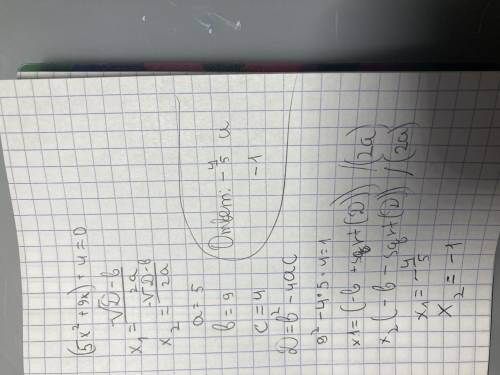 (5x² + 9x) + 4 = 0
x₁ = (√D - b) / 2a
x₂ = (-√D - b) / 2a
a = 5
b = 9
c = 4
D = b² - 4ac
9² - 4·5·4 = 1
x1 = (-b + sqrt(D)) / (2a)
x₂ (-b - sqrt(D)) / (2a)
x₁ = -4/5
x₂ = -1
Ответ: -4/5 и
-1